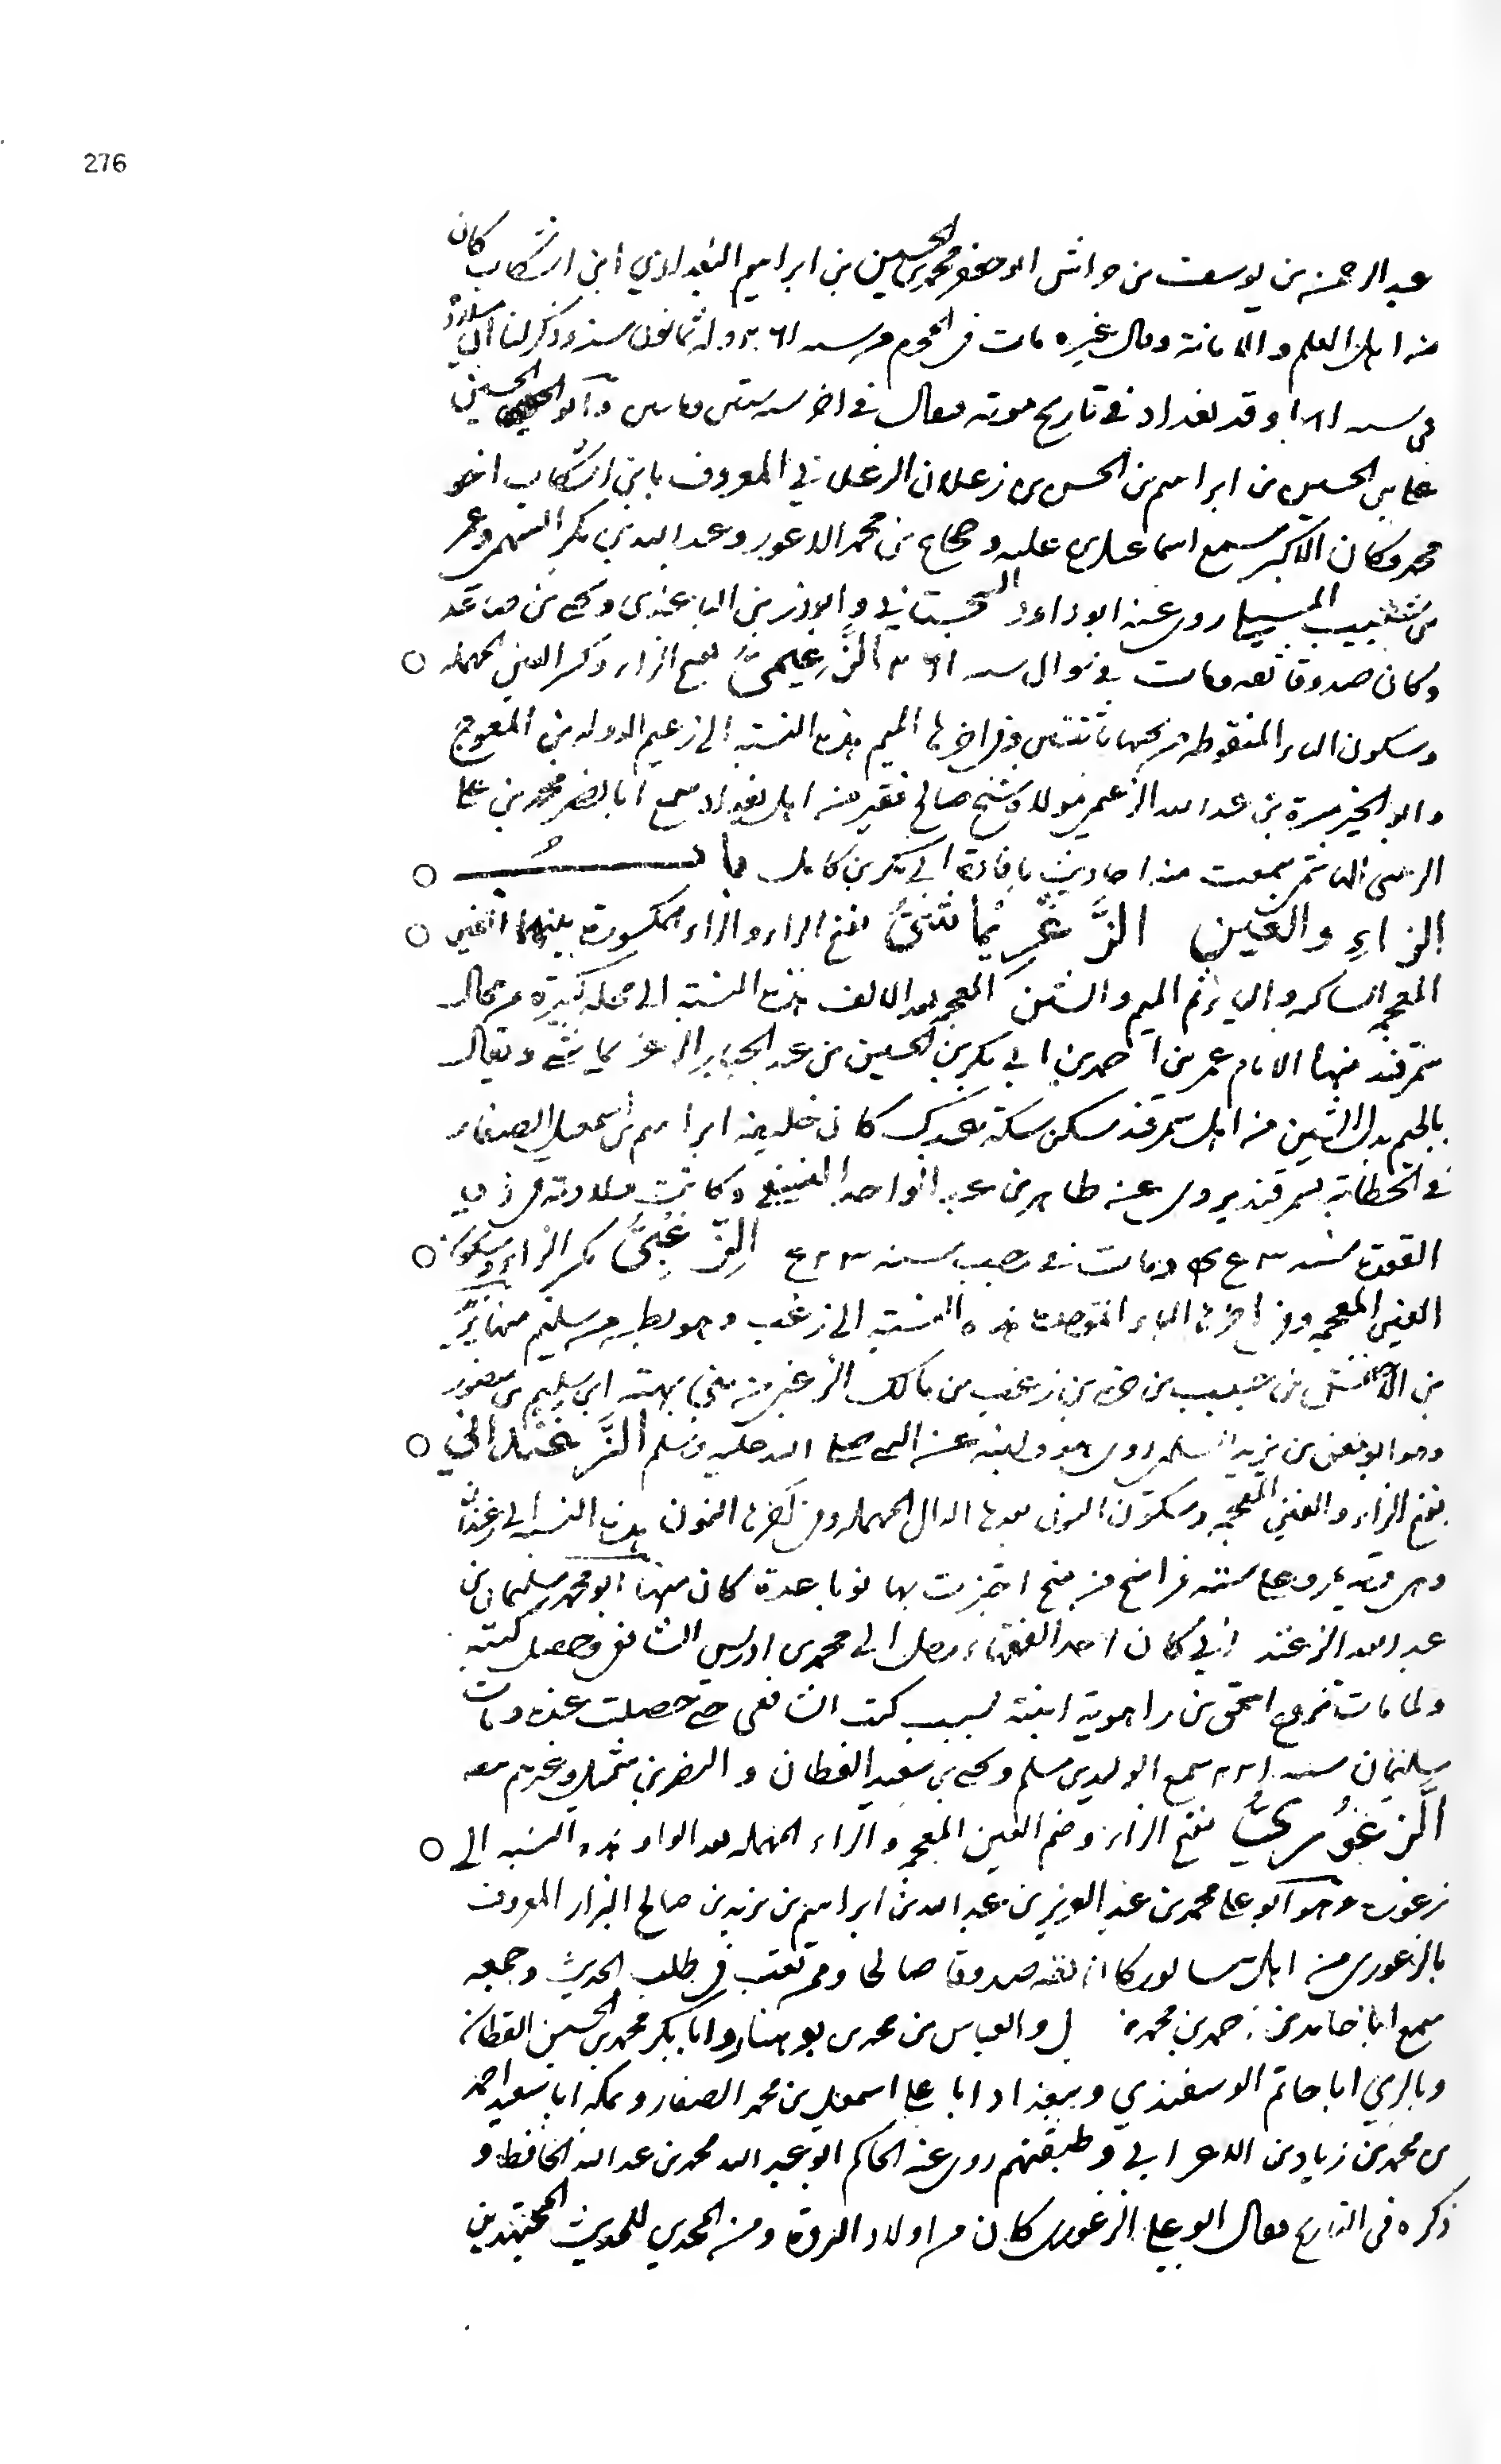 276
عبد الرحمن بن يوسف بن خراش ابو جعفر محمد بن الحسين بن ابراهيم البغدادي ابن اشكاب كان
من اهل العلم والامانة وقال غيره مات في المحرم من سنه ٢٦١ وله ثمانون سنه وذكر لنا
في سنه ١٨١ وقد بغداد في تاريخ موته فقال في اخر سنه ستين ومايتين وابو الحسين
علي بن الحسين بن ابراهيم بن الحسن بن زعلان الزعلاني المعروف بابن اشكاب اخو
محمد وكان الاكبر سمع اسماعيل بن عليه وحجاج بن محمد الاعور وعبد الله بن بكر السهمي وعمر
بن شبيب المسلي روى عنه ابو داود السجستاني وابو ذر بن الباغندي ويحيى بن صاعد
وكان صدوقا ثقه ومات في شوال سنه ٢٦١ الزَّعِيمي بفتح الزاء وكسر العين المهمله
وسكون الياء المنقوطه من تحتها باثنتين وفي اخرها الميم هذه النسبه الى زعيم الدوله بن المعوج
وابو الخير مسرة بن عبد الله الزعيمي مولاه شيخ صالح فقير من اهل بغداد سمع ابا نصر محمد بن علي
الزينبي الهاشمي سمعت منه احاديث بافادة ابي بكر بن كامل باب
الزاءِ والغين الزَّغْرِيْماشيّ بفتح الزاء والراء المكسورة بينهما الغين
المعجمه الساكنه والياء ثم الميم والشين المعجمه بعد الالف هذه النسبه الى محله كبيرة من محال
سمرقند منها الامام عمر بن احمد بن ابي بكر بن الحسين بن عبد الجبار الزغريماشي ويقال
بالجيم بدل الشين من اهل سمرقند سكن سكة عبدك كان خليفه ابراهيم بن اسمعيل الصفار
في الخطابة بسمرقند يروى عنه طاهر بن عبد الواحد وكانت ولادته في ذي
القعدة سنه ومات في رجب سنه الزِّغْبيُّ بكسر الزاء وسكون
الغين المعجمه وفي اخرها الباء الموحده هذه النسبه الى زغب وهو بطن من سليم منها يزيد
بن الاخنس بن حبيب بن جره بن زغب بن مالك الزغبي من بني بهثه ابن سليم بن منصور
وهو ابو معن بن يزيد السلمي روى هو وابنه عن النبي صلى الله عليه وسلم الزَّغَنْداني
بفتح الزاء والغين المعجمه وسكون النون بعدها الدال المهمله وفي اخرها النون هذه النسبه الى زغندان
وهي قريه بمرو على سته فراسخ منها اجتزت بها نوبا عدة كان منها ابو محمد سليمان بن
عبد الله الزغنداني كان احد الفقهاء رحل الى محمد بن ادريس الشافعي وحصل كتبه
ولما مات تزوج اسحق بن راهوية ابنته بسبب كتب الشافعي حتى حصلت عنده ومات
سليمان سنه ٢٢١ سمع الوليد بن مسلم ويحيى بن سعيد القطان والنضر بن شميل وغيرهم معه
الَّزغُوْرِيُّ بفتح الزاء وضم الغين المعجمه والراء المهمله بعد الواو هذه النسبه الى
زغوره وهو ابو علي محمد بن عبد العزيز بن عبد الله بن ابراهيم بن يزيد بن صالح البزار المعروف
بالزغوري من اهل نيسابور كان ثقه صدوقا صالحا وممن تعب في طلب الحديث وجمعه
سمع ابا حامد بن احمد بن محمد بن ل والعباس بن محمد بن بوهيار وابا بكر محمد بن الحسين القطان
وبالري ابا حاتم الوسقندي وببغداد ابا علي اسمعيل بن محمد الصفار وبمكه ابا سعيد احمد
بن محمد بن زياد بن الاعرابي وطبقتهم روى عنه الحاكم ابو عبد الله محمد بن عبد الله الحافظ و
ذكره في التاريخ فقال ابو علي الزغوري كان من اولاد الثروة ومن المحدثي للحديث المجتهدين